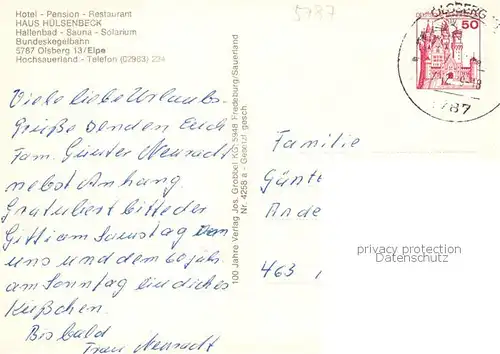 5787
Hotel - Pension - Restaurant
HAUS HÜLSENBECK
Hallenbad - Sauna - Solarium
Bundeskegelbahn
5787 Olsberg 13/Elpe
Hochsauerland - Telefon (02983) 234
Viele liebe Urlaubs-
Grüße senden Euch
Fam. Günter Neuradt
nebst Anhang.
Gratuliert bitte der
Gitti am Samstag von
uns und dem 60 jäh.
am Sonntag ein dickes
Küßchen.
Bis bald
Frau Neuradt
100 Jahre Verlag Jos. Grobbel KG 5948 Fredeburg/Sauerland
Nr. 4258 a - Gesetzl. gesch.
OLSBERG
50
5787
Familie
Günte
Ande
463
privacy protection
Datenschutz